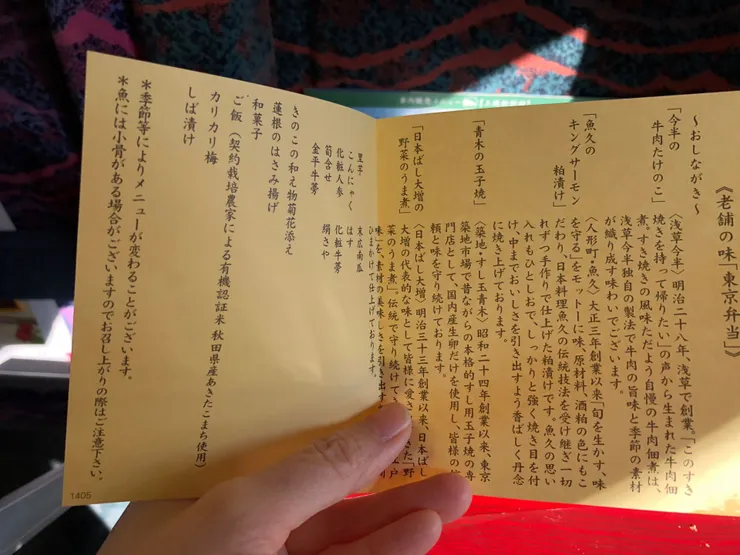 《老舗の味「東京弁当」》
～おしながき～
「今半の
牛肉たけのこ」
〈浅草今半〉明治二十八年、浅草で創業。「このすき
焼きを持って帰りたい」の声から生まれた牛肉佃
煮。すき焼きの風味ただよう自慢の牛肉佃煮は、
浅草今半独自の製法で牛肉の旨味と季節の素材
が織り成す味わいでございます。
「魚久の
キングサーモン
粕漬け」
〈人形町・魚久〉大正三年創業以来「旬を生かす、味
を守る」をモットーに味、原材料、酒粕の色にもこ
だわり、日本料理魚久の伝統技法を受け継ぎ一切
れずつ手作りで仕上げた粕漬けです。魚久の思い
入れもひとしおで、しっかりと強く焼き目を付
け、中までおいしさを引き出すよう香ばしく丹念
に焼き上げております。
「青木の玉子焼」
〈築地・すし玉青木〉昭和二十四年創業以来、東京
築地市場で昔ながらの本格的すし用玉子焼の専
門店として、国内産生卵だけを使用し、皆様の
頼と味を守り続けております。
「日本ばし大増の
野菜のうま煮」
〈日本ばし大増〉明治三十三年創業以来、日本ばし
大増の代表的な味として皆様に愛さ
た「野
菜のうま煮」。伝統で守り続けて
江戸
味と、素材の美味しさを引き出す
ひまかけて仕上げております。
里芋 末広南瓜
こんにゃく はす
化粧人参 化粧牛蒡
筍含せ 絹さや
金平牛蒡
きのこの和え物菊花添え
蓮根のはさみ揚げ
和菓子
ご飯（契約栽培農家による有機認証米 秋田県産あきたこまち使用）
カリカリ梅
しば漬け
＊季節等によりメニューが変わることがございます。
＊魚には小骨がある場合がございますのでお召し上がりの際はご注意下さい。
1405